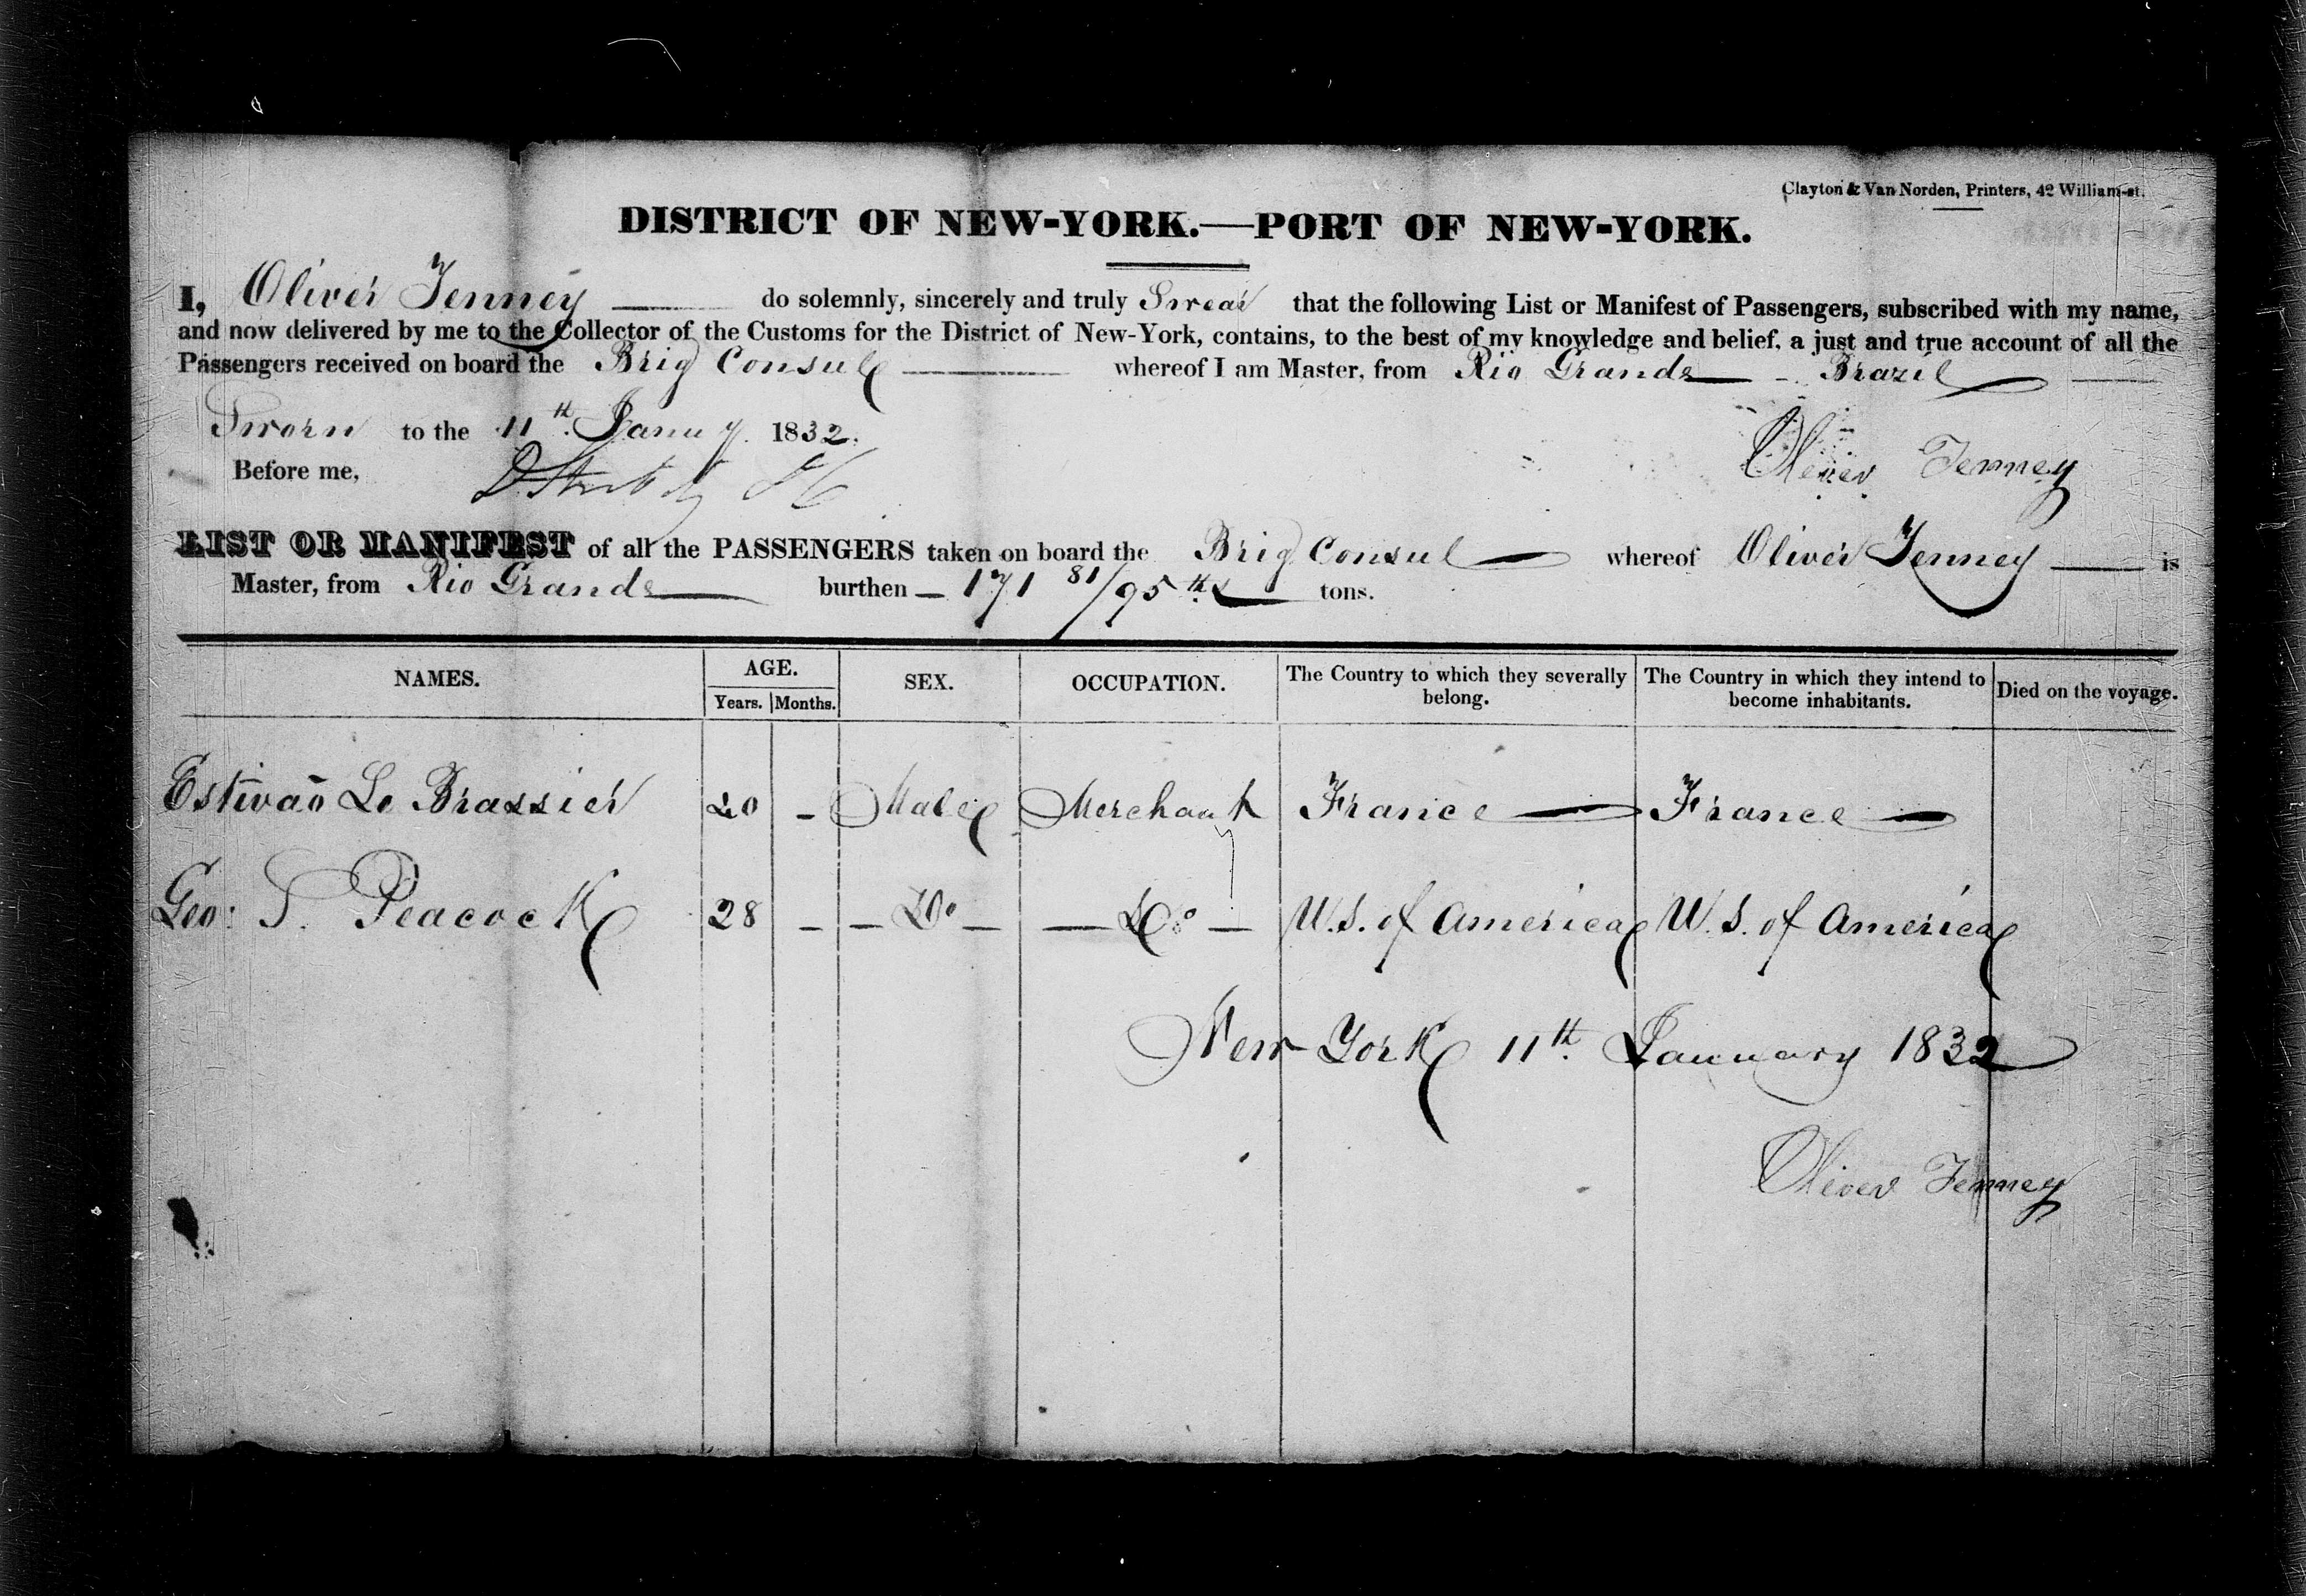 Clayton & Van Norden, Printers, 42 William-st.
DISTRICT OF NEW-YORK.—PORT OF NEW-YORK.
I, Oliver Jenney do solemnly, sincerely and truly Swear that the following List or Manifest of Passengers, subscribed with my name,
and now delivered by me to the Collector of the Customs for the District of New-York, contains, to the best of my knowledge and belief, a just and true account of all the
Passengers received on board the Brig Consul whereof I am Master, from Rio Grande - Brazil
Sworn to the 11th Januy 1832.
Before me,
Oliver Jenney
LIST OR MANIFEST of all the PASSENGERS taken on board the Brig Consul whereof Oliver Jenney is
Master, from Rio Grande burthen — 171 81/95ths tons.
NAMES. AGE. SEX. OCCUPATION. The Country to which they severally belong. The Country in which they intend to become inhabitants. Died on the voyage.
Years. Months.
Estivaõ Le Brassier - Male Merchant France France
Geo: S. Peacock 28 - - Do - - Do - U.S. of America U.S. of America
New York 11th January 1832
Oliver Jenney